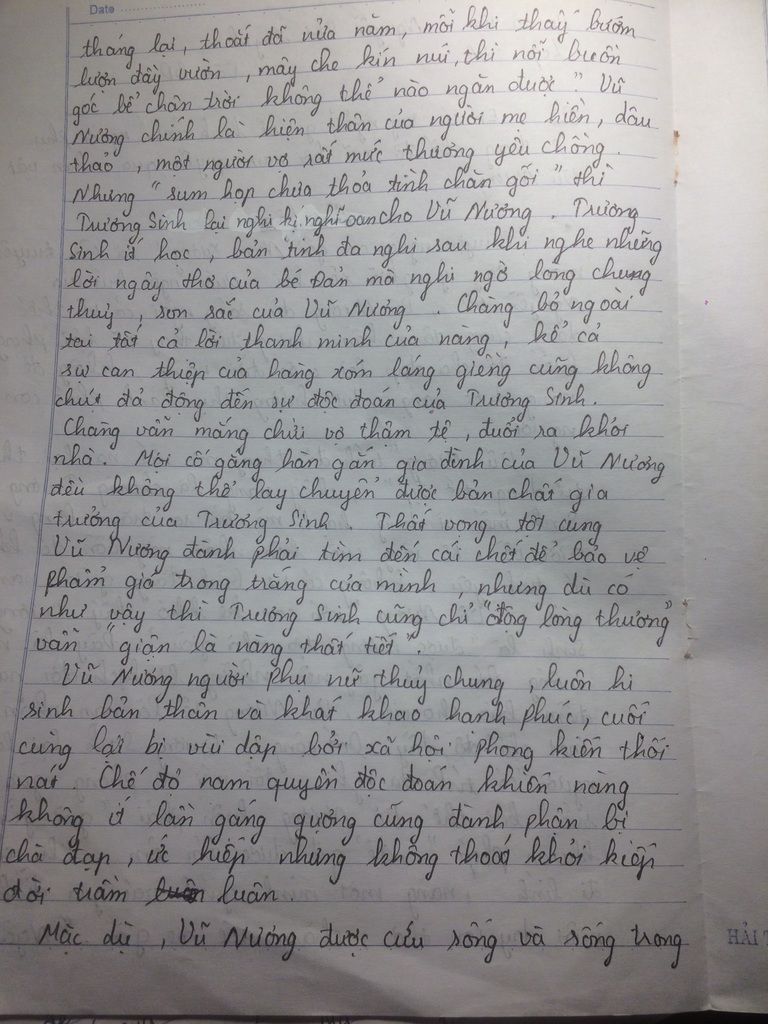 Date
tháng lại, thoắt đã nửa năm, mỗi khi thấy bướm
lượn đầy vườn, mây che kín núi, thì nỗi buồn
góc bể chân trời không thể nào ngăn được". Vũ
Nương chính là hiện thân của người mẹ hiền, dâu
thảo, một người vợ rất mực thương yêu chồng.
Nhưng "sum họp chưa thỏa tình chăn gối" thì
Trương Sinh lại nghi kị, nghĩ oan cho Vũ Nương. Trương
Sinh ít học, bản tính đa nghi sau khi nghe những
lời ngây thơ của bé Đản mà nghi ngờ lòng chung
thuỷ, son sắc của Vũ Nương. Chàng bỏ ngoài
tai tất cả lời thanh minh của nàng, kể cả
sự can thiệp của hàng xóm láng giềng cũng không
chút đả động đến sự độc đoán của Trương Sinh.
Chàng vẫn mắng chửi vợ thậm tệ, đuổi ra khỏi
nhà. Mọi cố gắng hàn gắn gia đình của Vũ Nương
đều không thể lay chuyển được bản chất gia
trưởng của Trương Sinh. Thất vọng tột cùng
Vũ Nương đành phải tìm đến cái chết để bảo vệ
phẩm giá trong trắng của mình, nhưng dù có
như vậy thì Trương Sinh cũng chỉ "động lòng thương"
vẫn "giận là nàng thất tiết".
Vũ Nương người phụ nữ thuỷ chung, luôn hi
sinh bản thân và khát khao hạnh phúc, cuối
cùng lại bị vùi dập bởi xã hội phong kiến thối
nát. Chế độ nam quyền độc đoán khiến nàng
không ít lần gắng gượng cũng đành phận bị
chà đạp, ức hiếp nhưng không thoát khỏi kiếp
đời trầm luân.
Mặc dù, Vũ Nương được cứu sống và sống trong
HẢI T